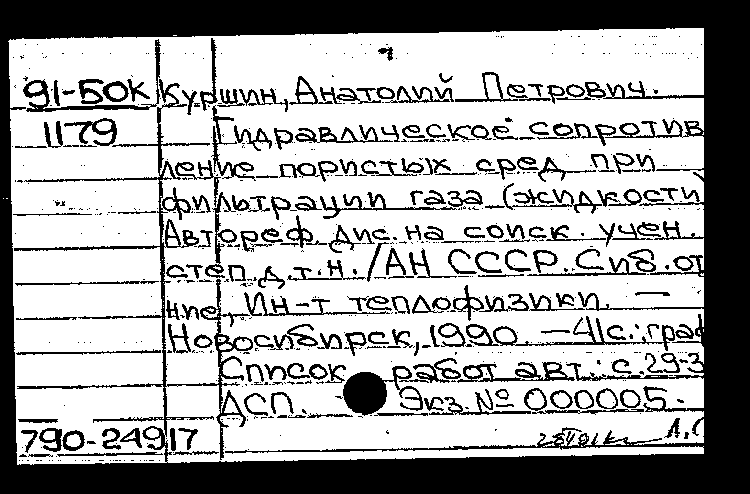 91-БОК Куршин, Анатолий Петрович.
1179 Гидравлическое сопротив
ление пористых сред при
фильтрации газа (жидкости)
Автореф. дис. на соиск. учен.
степ. д.т.н. /АН СССР. Сиб. от
ние, Ин-т теплофизики. —
Новосибирск, 1990. —41с.: граф
Список работ авт.: с. 29-3
ДСП. Экз. № 000005.
790-24917